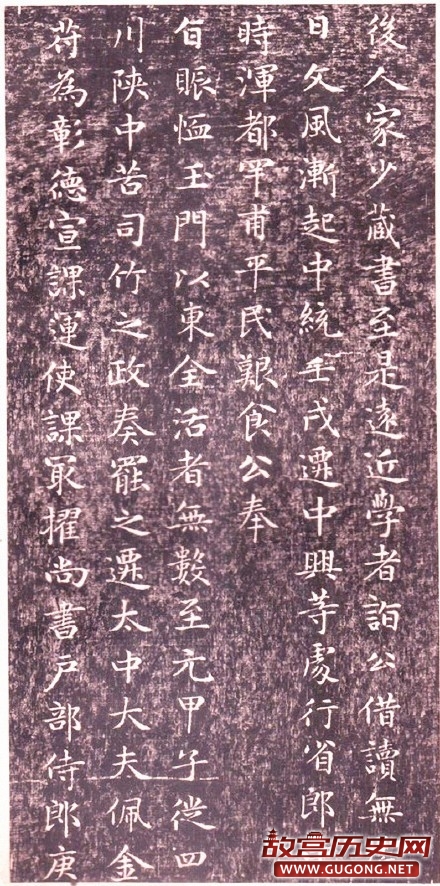 後人家少藏書至是遠近學者詣公借讀無
日文風漸起中統壬戌遷中興等處行省郎
時渾都罕甫平民艱食公奉
旨賑恤玉門以東全活者無數至元甲子從四
川陝中苦司竹之政奏罷之遷太中大夫佩金
符為彰德宣課運使課最擢尚書戶部侍郎庚
故宫历史网
WWW.GUGONG.NET